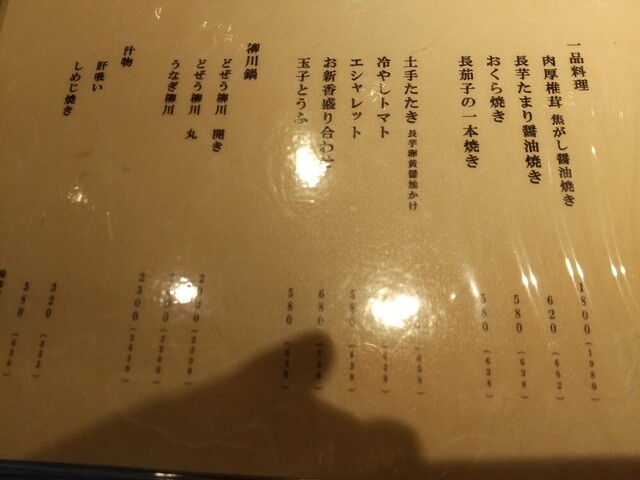 一品料理
肉厚椎茸 焦がし醤油焼き 1800(1980)
長芋たまり醤油焼き 620(682)
おくら焼き 580(638)
長茄子の一本焼き 580(638)
土手たたき 長芋卵黄醤油かけ
冷やしトマト (638)
エシャレット (638)
お新香盛り合わせ 680
玉子とうふ 580(638)
柳川鍋
どぜう柳川 開き (2200)
どぜう柳川 丸 (2200)
うなぎ柳川 2300(2530)
汁物
肝吸い 320(352)
しめじ焼き 580(638)